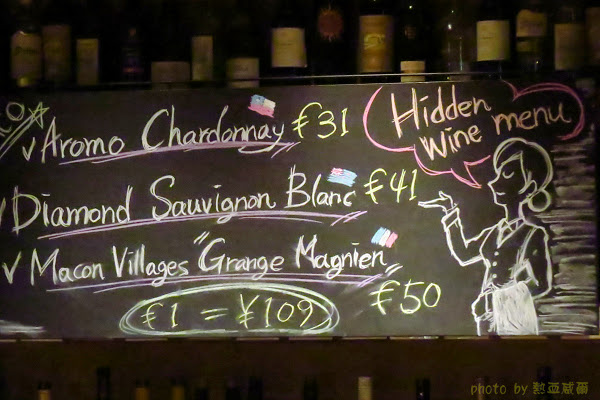 Hidden
wine menu
✓ Aromo Chardonnay €31
✓ Diamond Sauvignon Blanc €41
✓ Macon Villages "Grange Magnien"
€50
€1 = ¥109
photo by 熱血威爾